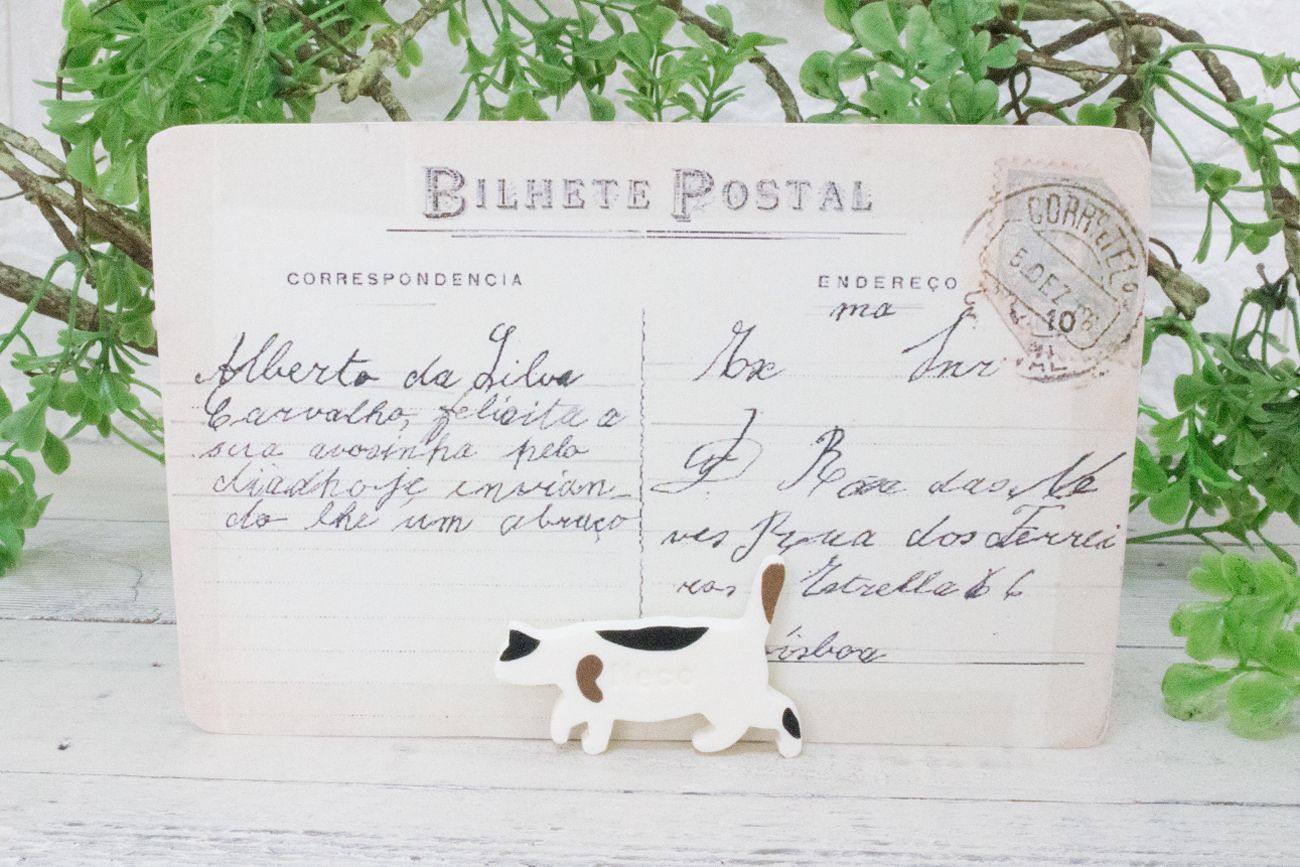 BILHETE POSTAL
CORRESPONDENCIA
Alberto da Silva
Carvalho, felicita a
sua avosinha pelo
diadhoje envian_
do lhe um abraço
ENDEREÇO
ma
Ex Snr
D Rosa das Ne
ves Rua dos Ferrei
ros Estrella 66
Lisboa
CORRº E TELº
5 DEZ
10
Neco